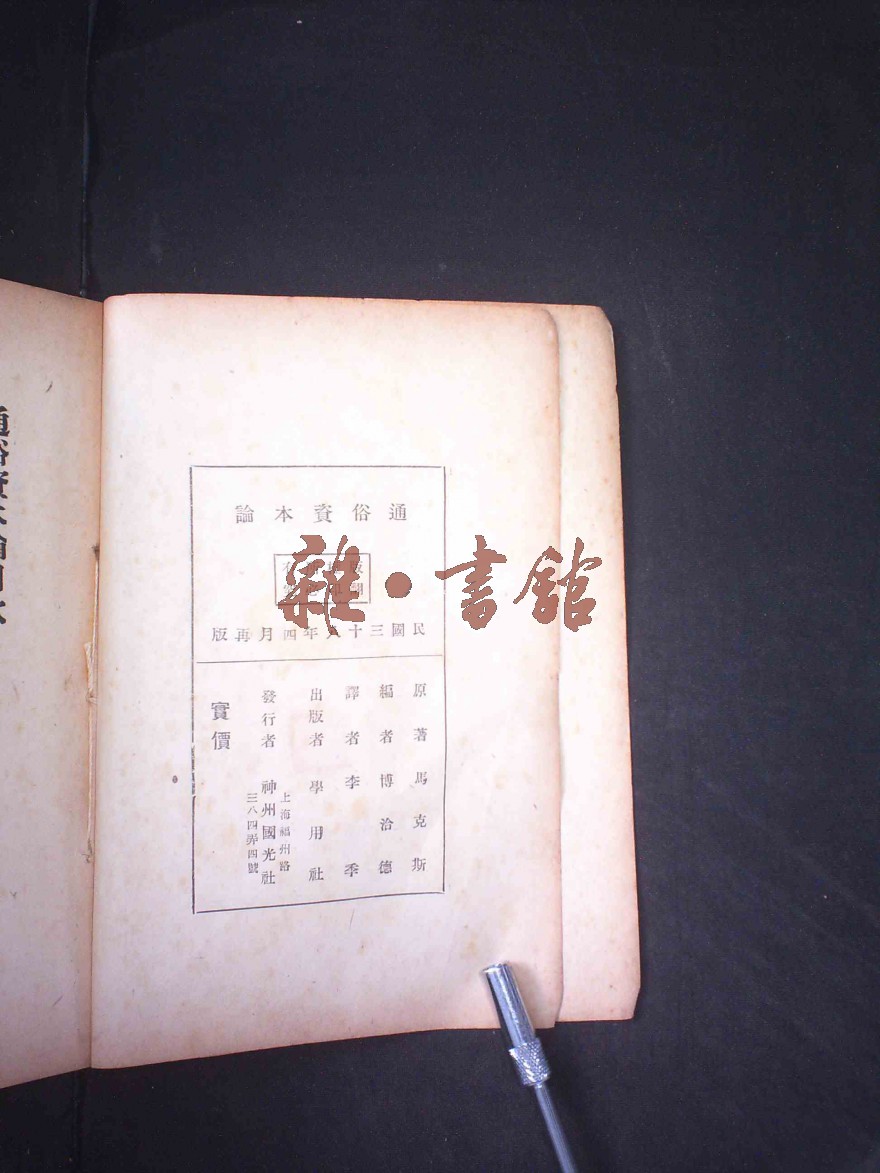 通俗資本論
民國三十年四月再版
原著 馬克斯
編者 博洽德
譯者 李季
出版者 學用社
發行者 神州國光社
上海福州路
三八四弄四號
實價
雜·書館
通俗資本論目次